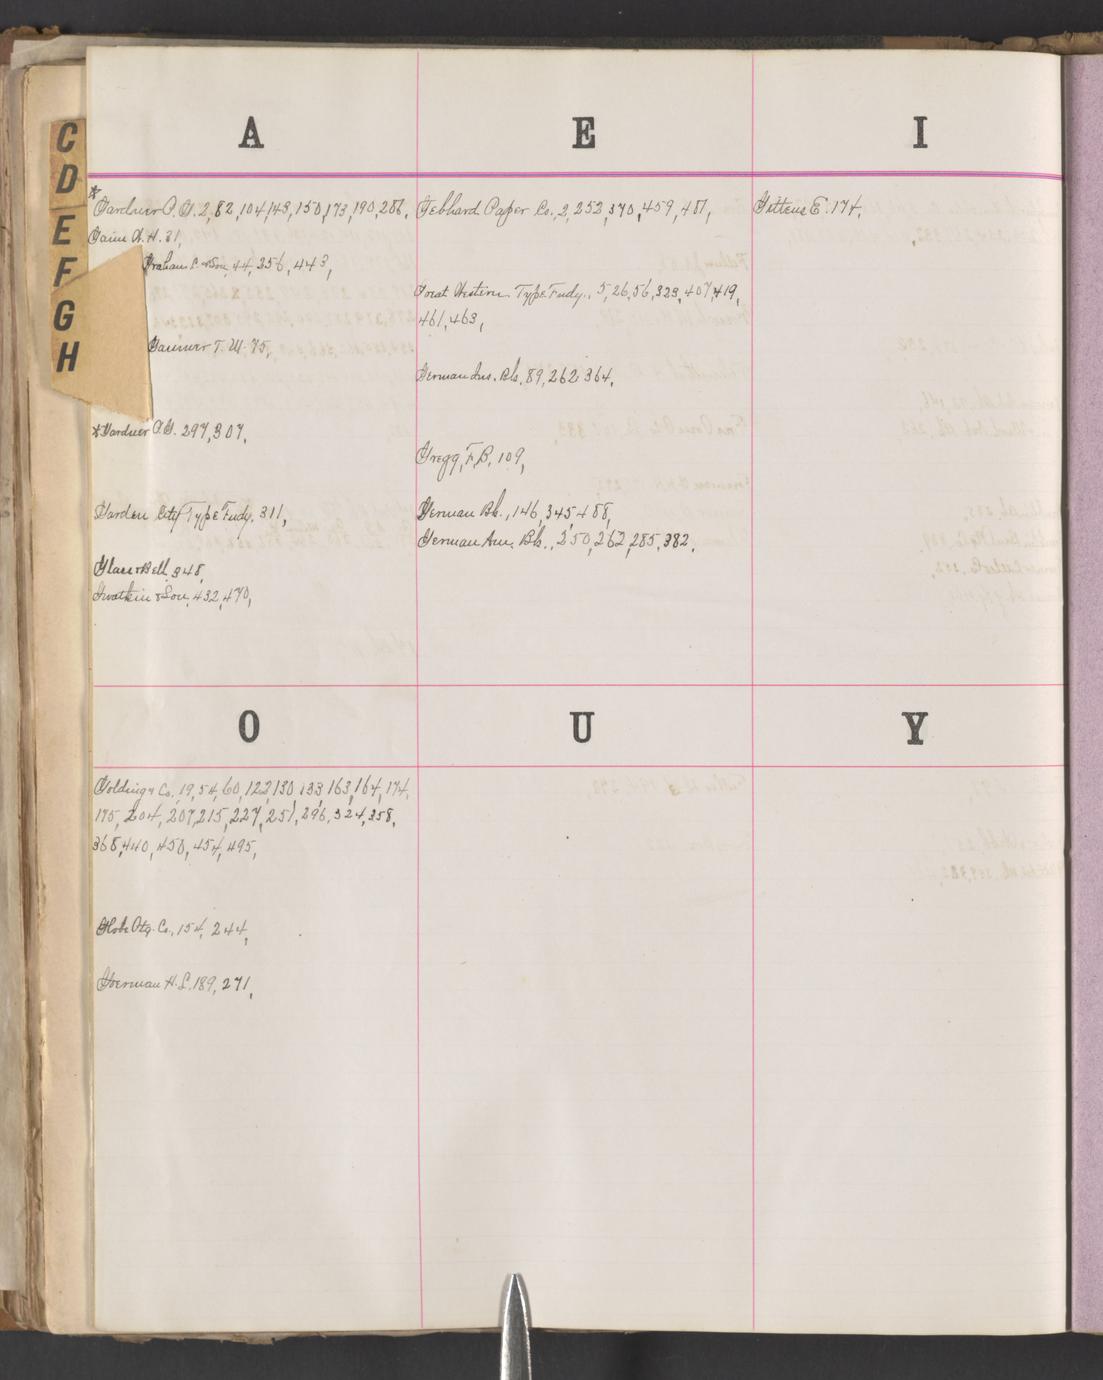 C
D
E
F
G
H
A
* Gardner P. G. 2, 82, 104, 143, 150, 173, 190, 286,
W. H. 31,
Graham & Son, 44, 256, 443,
T. W. 75,
* Gardner P. G. 297, 307,
Garden City Type Fndy. 311,
& Bell, 348,
Gwatkin & Son, 432, 470,
E
Gebhard Paper Co. 2, 252, 370, 459, 487,
Great Western Type Fndy., 5, 26, 56, 323, 407, 419,
461, 463,
German Ins. Bk. 89, 262, 364,
Gregg, F. B. 109,
German Bk., 146, 345, 488,
German Am. Bk., 250, 262, 285, 382,
I
Gittens E. 174,
O
Golding & Co. 19, 54, 60, 122, 130, 133, 163, 164, 174,
175, 204, 207, 215, 227, 251, 296, 324, 358,
368, 440, 450, 454, 495,
Globe Co., 154, 244,
H. L. 189, 271,
U
Y